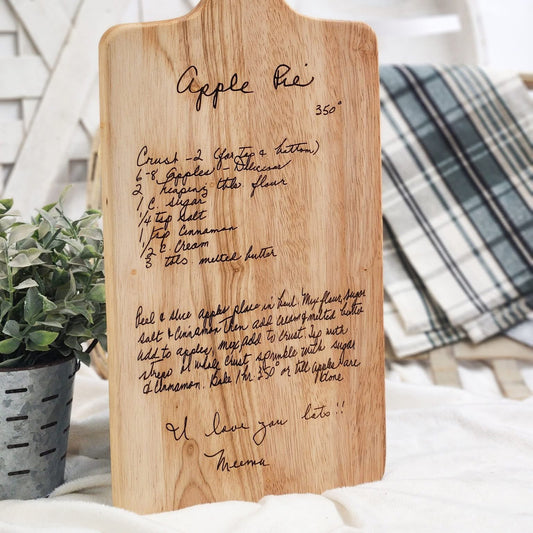 Apple Pie
350°
Crust - 2 (for top & bottom)
6-8 apples - Delicious
2 heaping tbls flour
1 C. sugar
1/4 tsp salt
1 tsp Cinnamon
1/2 C. Cream
3 tbls. melted butter
Peel & slice apples place in bowl. Mix flour, sugar
salt & Cinnamon then add cream & melted butter
add to apples, mix, add to crust. Top with
strips or whole crust sprinkle with sugar
& Cinnamon. Bake 1 hr 350° or till apples are
done
I love you lots!!
Meema